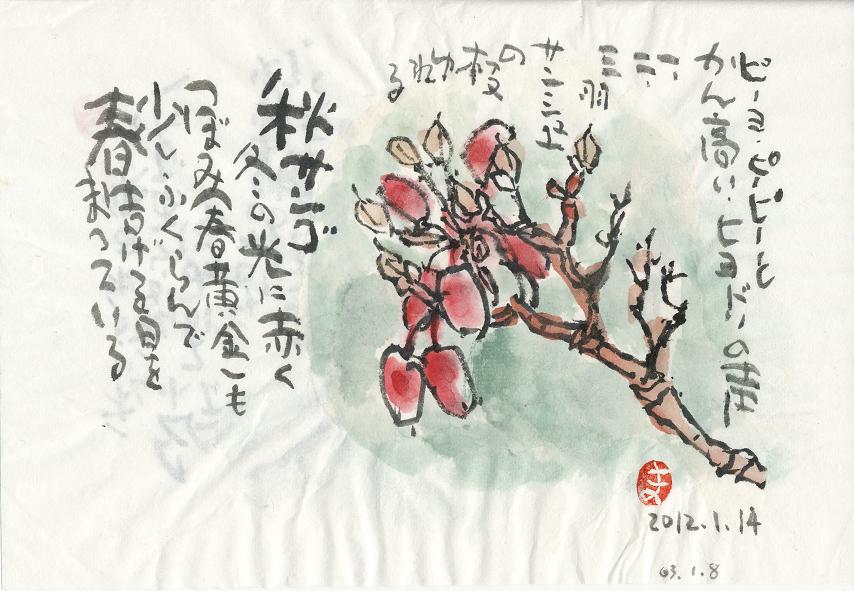 ピーヨ、ピーピーと
かん高い、ヒヨドリの声
三羽
の
枝
ゆれ
る
秋サンゴ
冬の光に赤く
つぼみ(春黄金)も
少しふくらんで
春告げる日を
まっている
2012.1.14